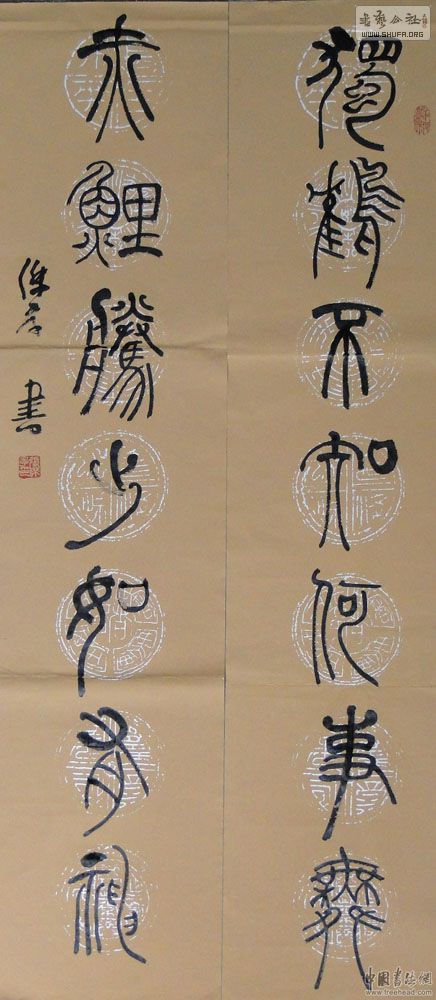 獨鶴不知何事舞
赤鯉騰出如有神
書
書藝公社
WWW.SHUFA.ORG
中国书法网
www.treehead.com